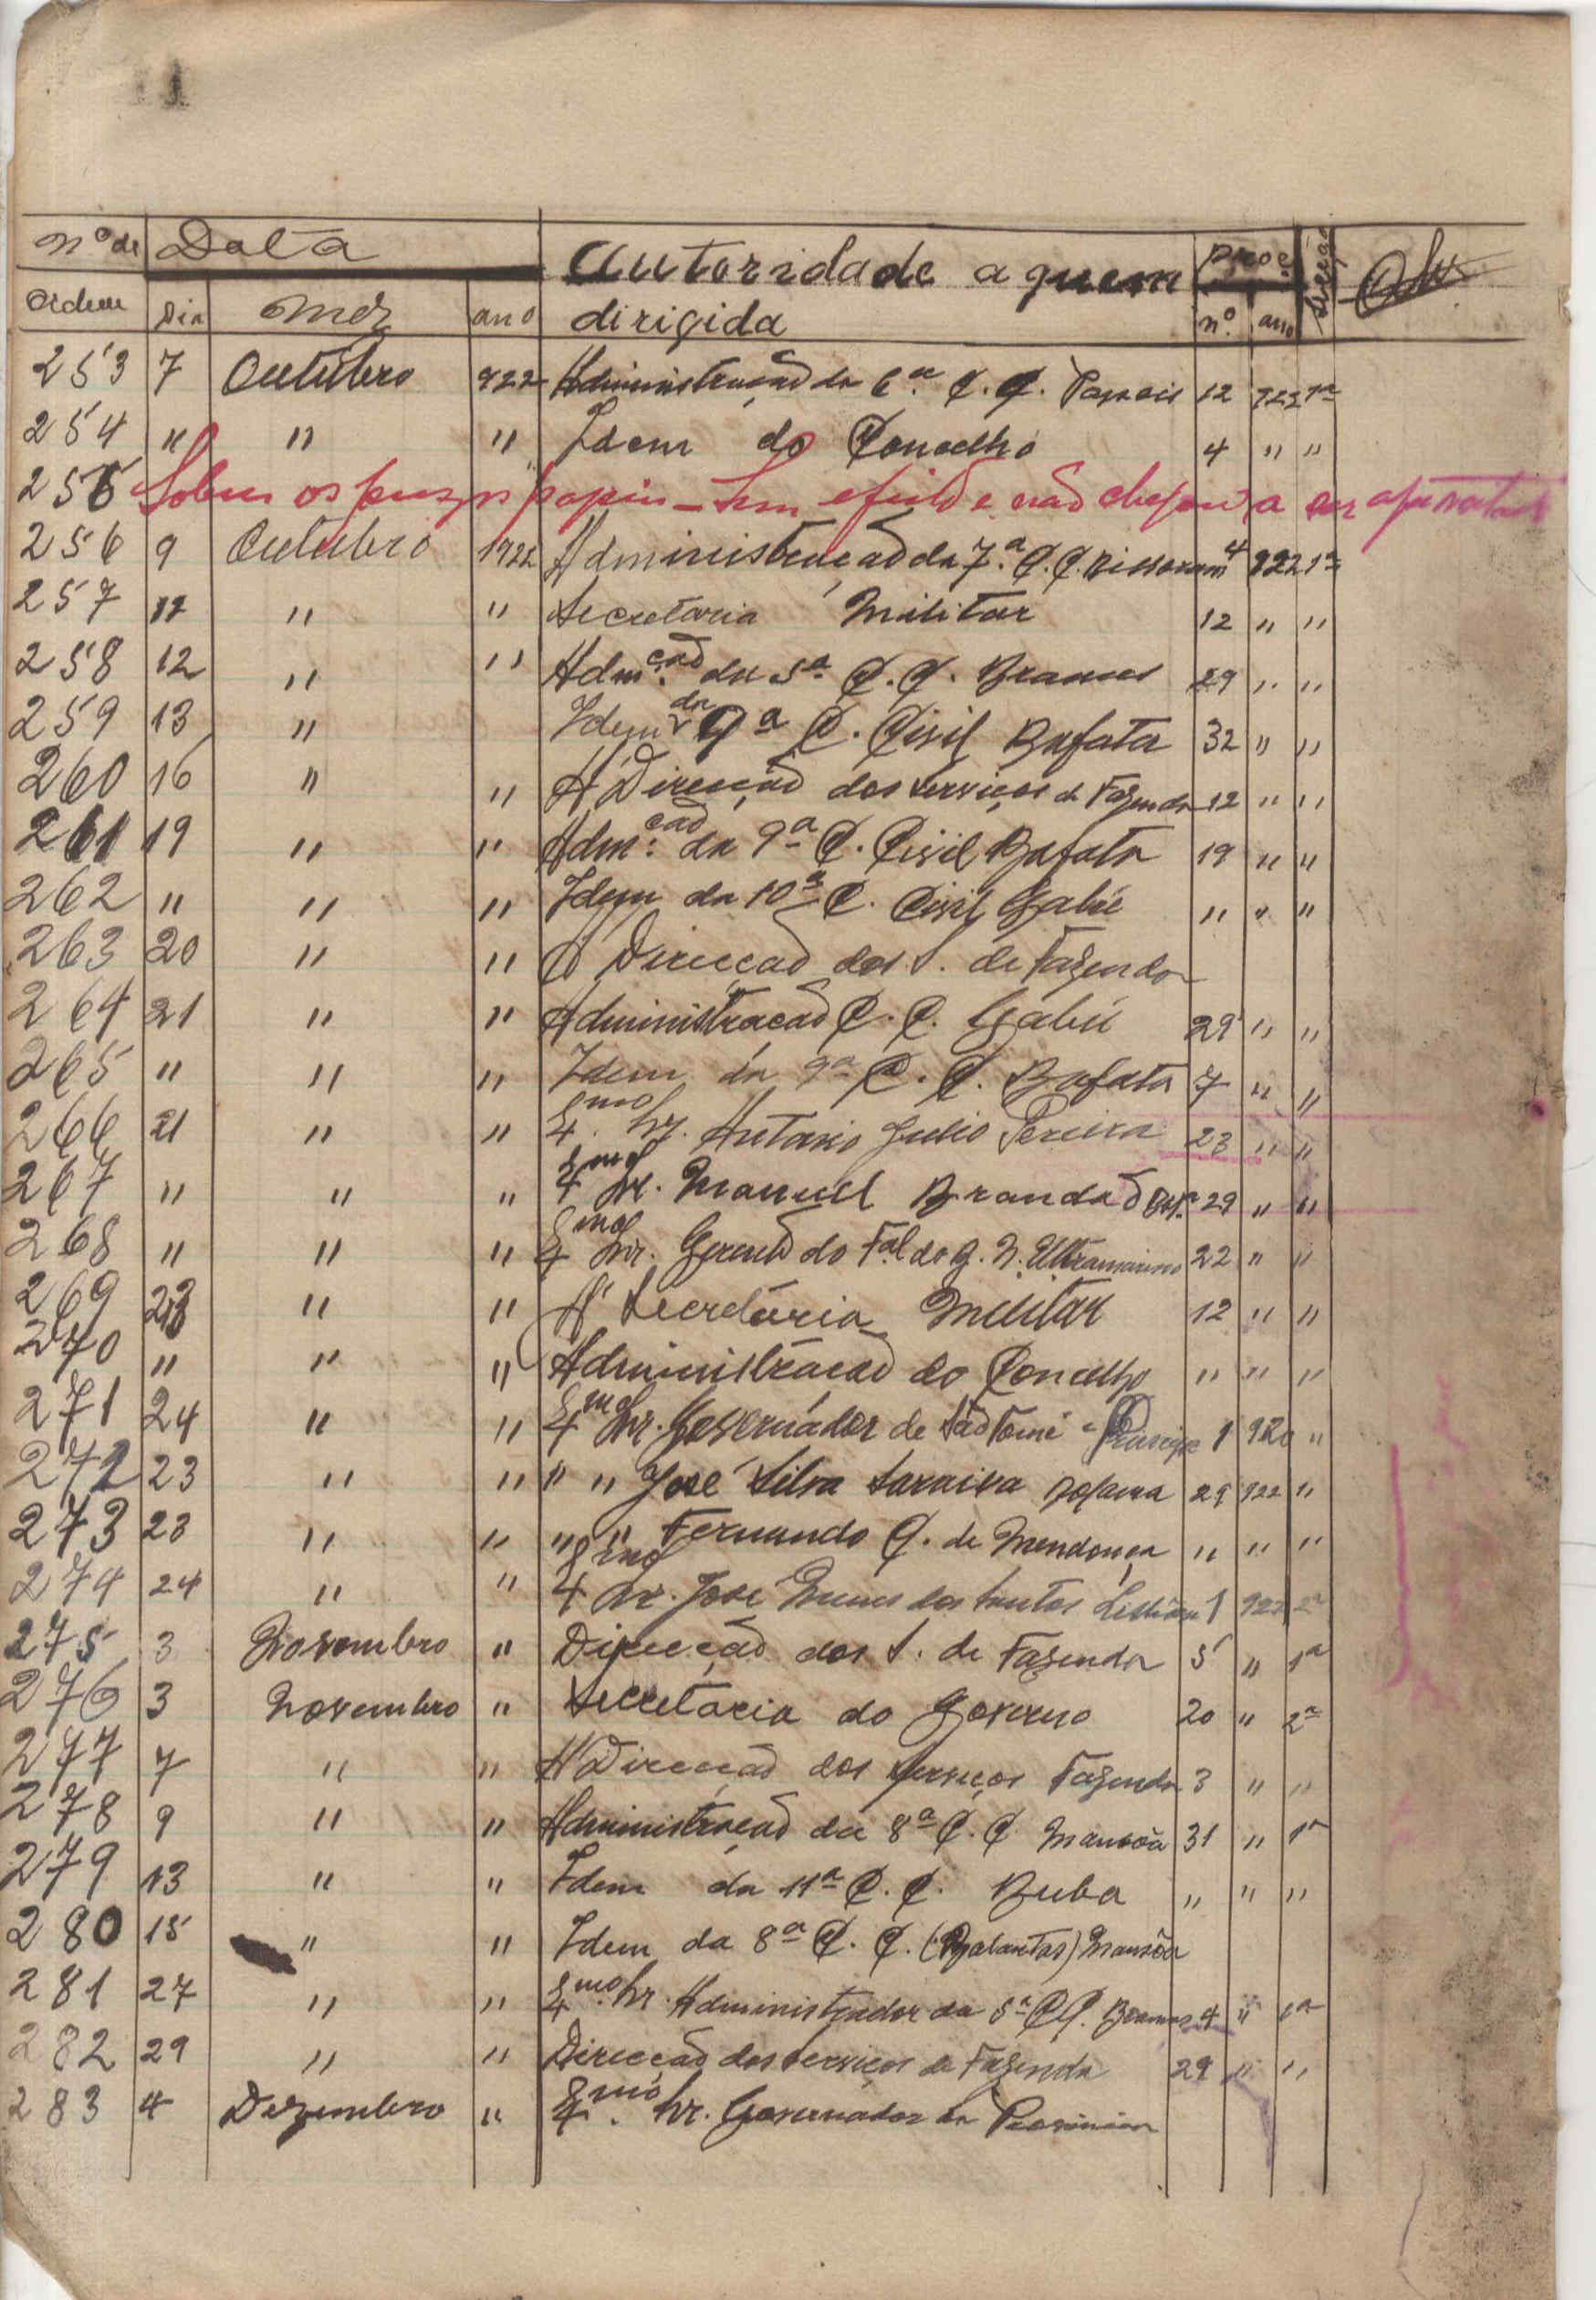 nº de Data Autoridade a quem proc. Secção
Ordem Dia Mez ano dirigida nº ano
253 7 Outubro 922 Administração da 6.ª C. C. Papeis 12 922 1ª
254 " " " Idem do Concelho 4 " "
255 Sobre os papeis — Sem efeito e não chegou a ser
256 9 Outubro 1922 Administração da 7.ª C. C. Bissoram 4 922 1ª
257 11 " " Secretaria Militar 12 " "
258 12 " " Adm.ção da 5ª C. C. Brames 29 " "
259 13 " Idem da 9ª C. Civil Bafata 32 " "
260 16 " " A' Direcção dos Serviços de Fazenda 12 " "
261 19 " " Adm.ção da 9ª C. Civil Bafata 19 " "
262 " " " Idem da 10ª C. Civil Gabú " " "
263 20 " " A' Direcção dos S. de Fazenda
264 21 " " Administração C. C. Gabú 29 " "
265 " " " Idem da 9ª C. C. Bafata 7 " "
266 21 " " Exmo. Sr. Antonio Julio Pereira 23 " "
267 " " " Exmo Sr. Manuel Brandão 29 " "
268 " " " Exmo Sr. Gerente do Fal do B. N. Ultramarino 22 " "
269 23 " " A' Secretaria Militar 12 " "
270 " " " Administração do Concelho " " "
271 24 " " Exmo Sr. Governador de São Tomé e Principe 1 920 "
272 23 " " " " José Silva Saraiva Bolama 29 922 "
273 23 " " " " Fernando C. de Mendonça " " "
274 24 " " Exmo Sr. José Nunes dos Santos Lisbôa 1 922 2ª
275 3 Novembro " Direcção dos S. de Fazenda 5 " 1ª
276 3 Novembro " Secretaria do Governo 20 " 2ª
277 7 " " A' Direcção dos Serviços Fazenda 3 " "
278 9 " " Administração da 8ª C. C. Mansôa 31 " 1ª
279 13 " " Idem da 11ª C. C. Buba " " "
280 15 " " Idem da 8ª C. C. (Balantas) Mansôa
281 27 " " Exmo. Sr. Administrador da 5ª C. C. Brames 4 " 1ª
282 29 " " Direcção dos Serviços de Fazenda 29 " "
283 4 Dezembro " Exmo. Sr. Governador da Provincia